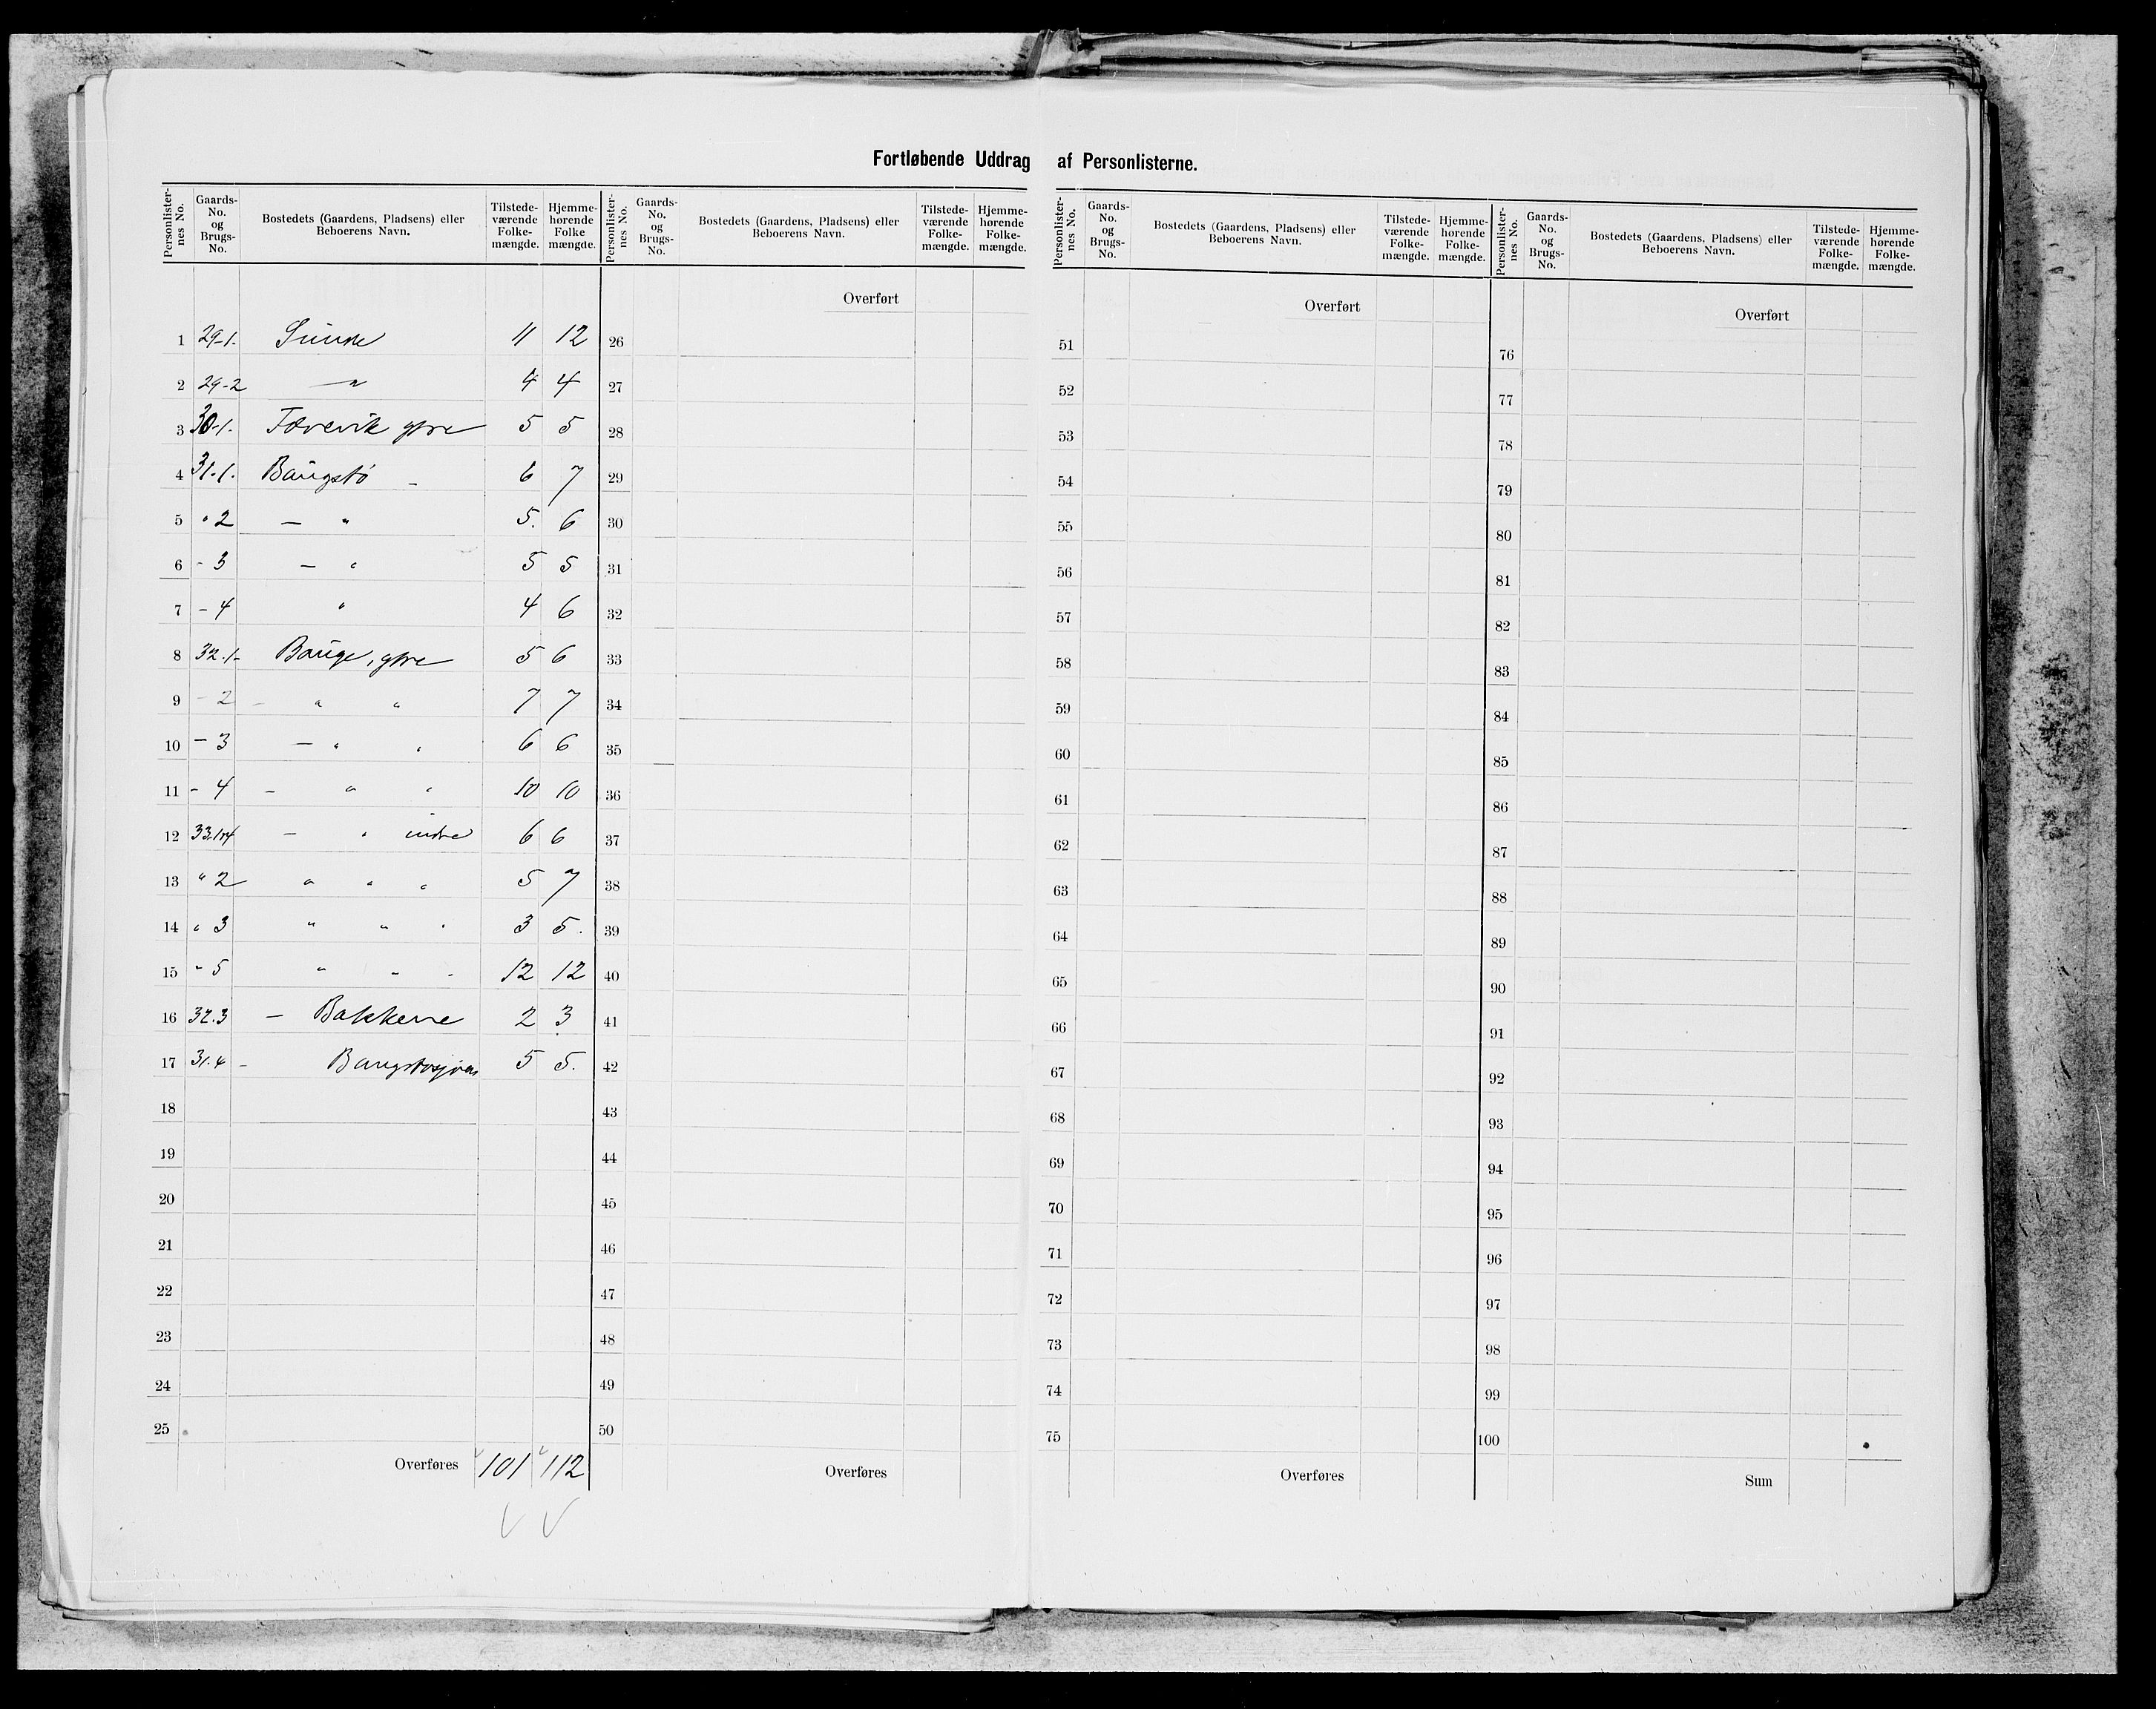 Fortløbende Uddrag af Personlisterne.
Personlister-nes No. | Gaards-No. og Brugs-No. | Bostedets (Gaardens, Pladsens) eller Beboerens Navn. | Tilstede-værende Folke-mængde. | Hjemme-hørende Folke mængde.
1 29-1. Sunde 11 12
2 29-2 —„ 4 4
3 30-1. Færevik ytre 5 5
4 31-1. Baugstø - 6 7
5 „ 2 — „ 5. 6
6 - 3 — „ 5 5
7 - 4 „ 4 6
8 32.1- Bauge, ytre 5 6
9 - 2 - „ „ 7 7
10 - 3 — „ „ 6 6
11 - 4 - „ „ 10 10
12 33.1+4 — „ indre 6 6
13 „ 2 „ „ „ 5 7
14 „ 3 „ „ „ 3 5.
15 „ 5 „ „ „ 12 12
16 32.3 — Bakkene 2 3
17 31.4 - 5 5.
18
19
20
21
22
23
24
25
Overføres 101 112
Personlister-nes No. | Gaards-No. og Brugs-No. | Bostedets (Gaardens, Pladsens) eller Beboerens Navn. | Tilstede-værende Folke-mængde. | Hjemme-hørende Folke-mængde.
Overført
26
27
28
29
30
31
32
33
34
35
36
37
38
39
40
41
42
43
44
45
46
47
48
49
50
Overføres
Personlister-nes No. | Gaards-No. og Brugs-No. | Bostedets (Gaardens, Pladsens) eller Beboerens Navn. | Tilstede-værende Folke-mængde. | Hjemme-hørende Folke-mængde.
Overført
51
52
53
54
55
56
57
58
59
60
61
62
63
64
65
66
67
68
69
70
71
72
73
74
75
Overføres
Personlister-nes No. | Gaards-No. og Brugs-No. | Bostedets (Gaardens, Pladsens) eller Beboerens Navn. | Tilstede-værende Folke-mængde. | Hjemme-hørende Folke-mængde.
Overført
76
77
78
79
80
81
82
83
84
85
86
87
88
89
90
91
92
93
94
95
96
97
98
99
100
Sum